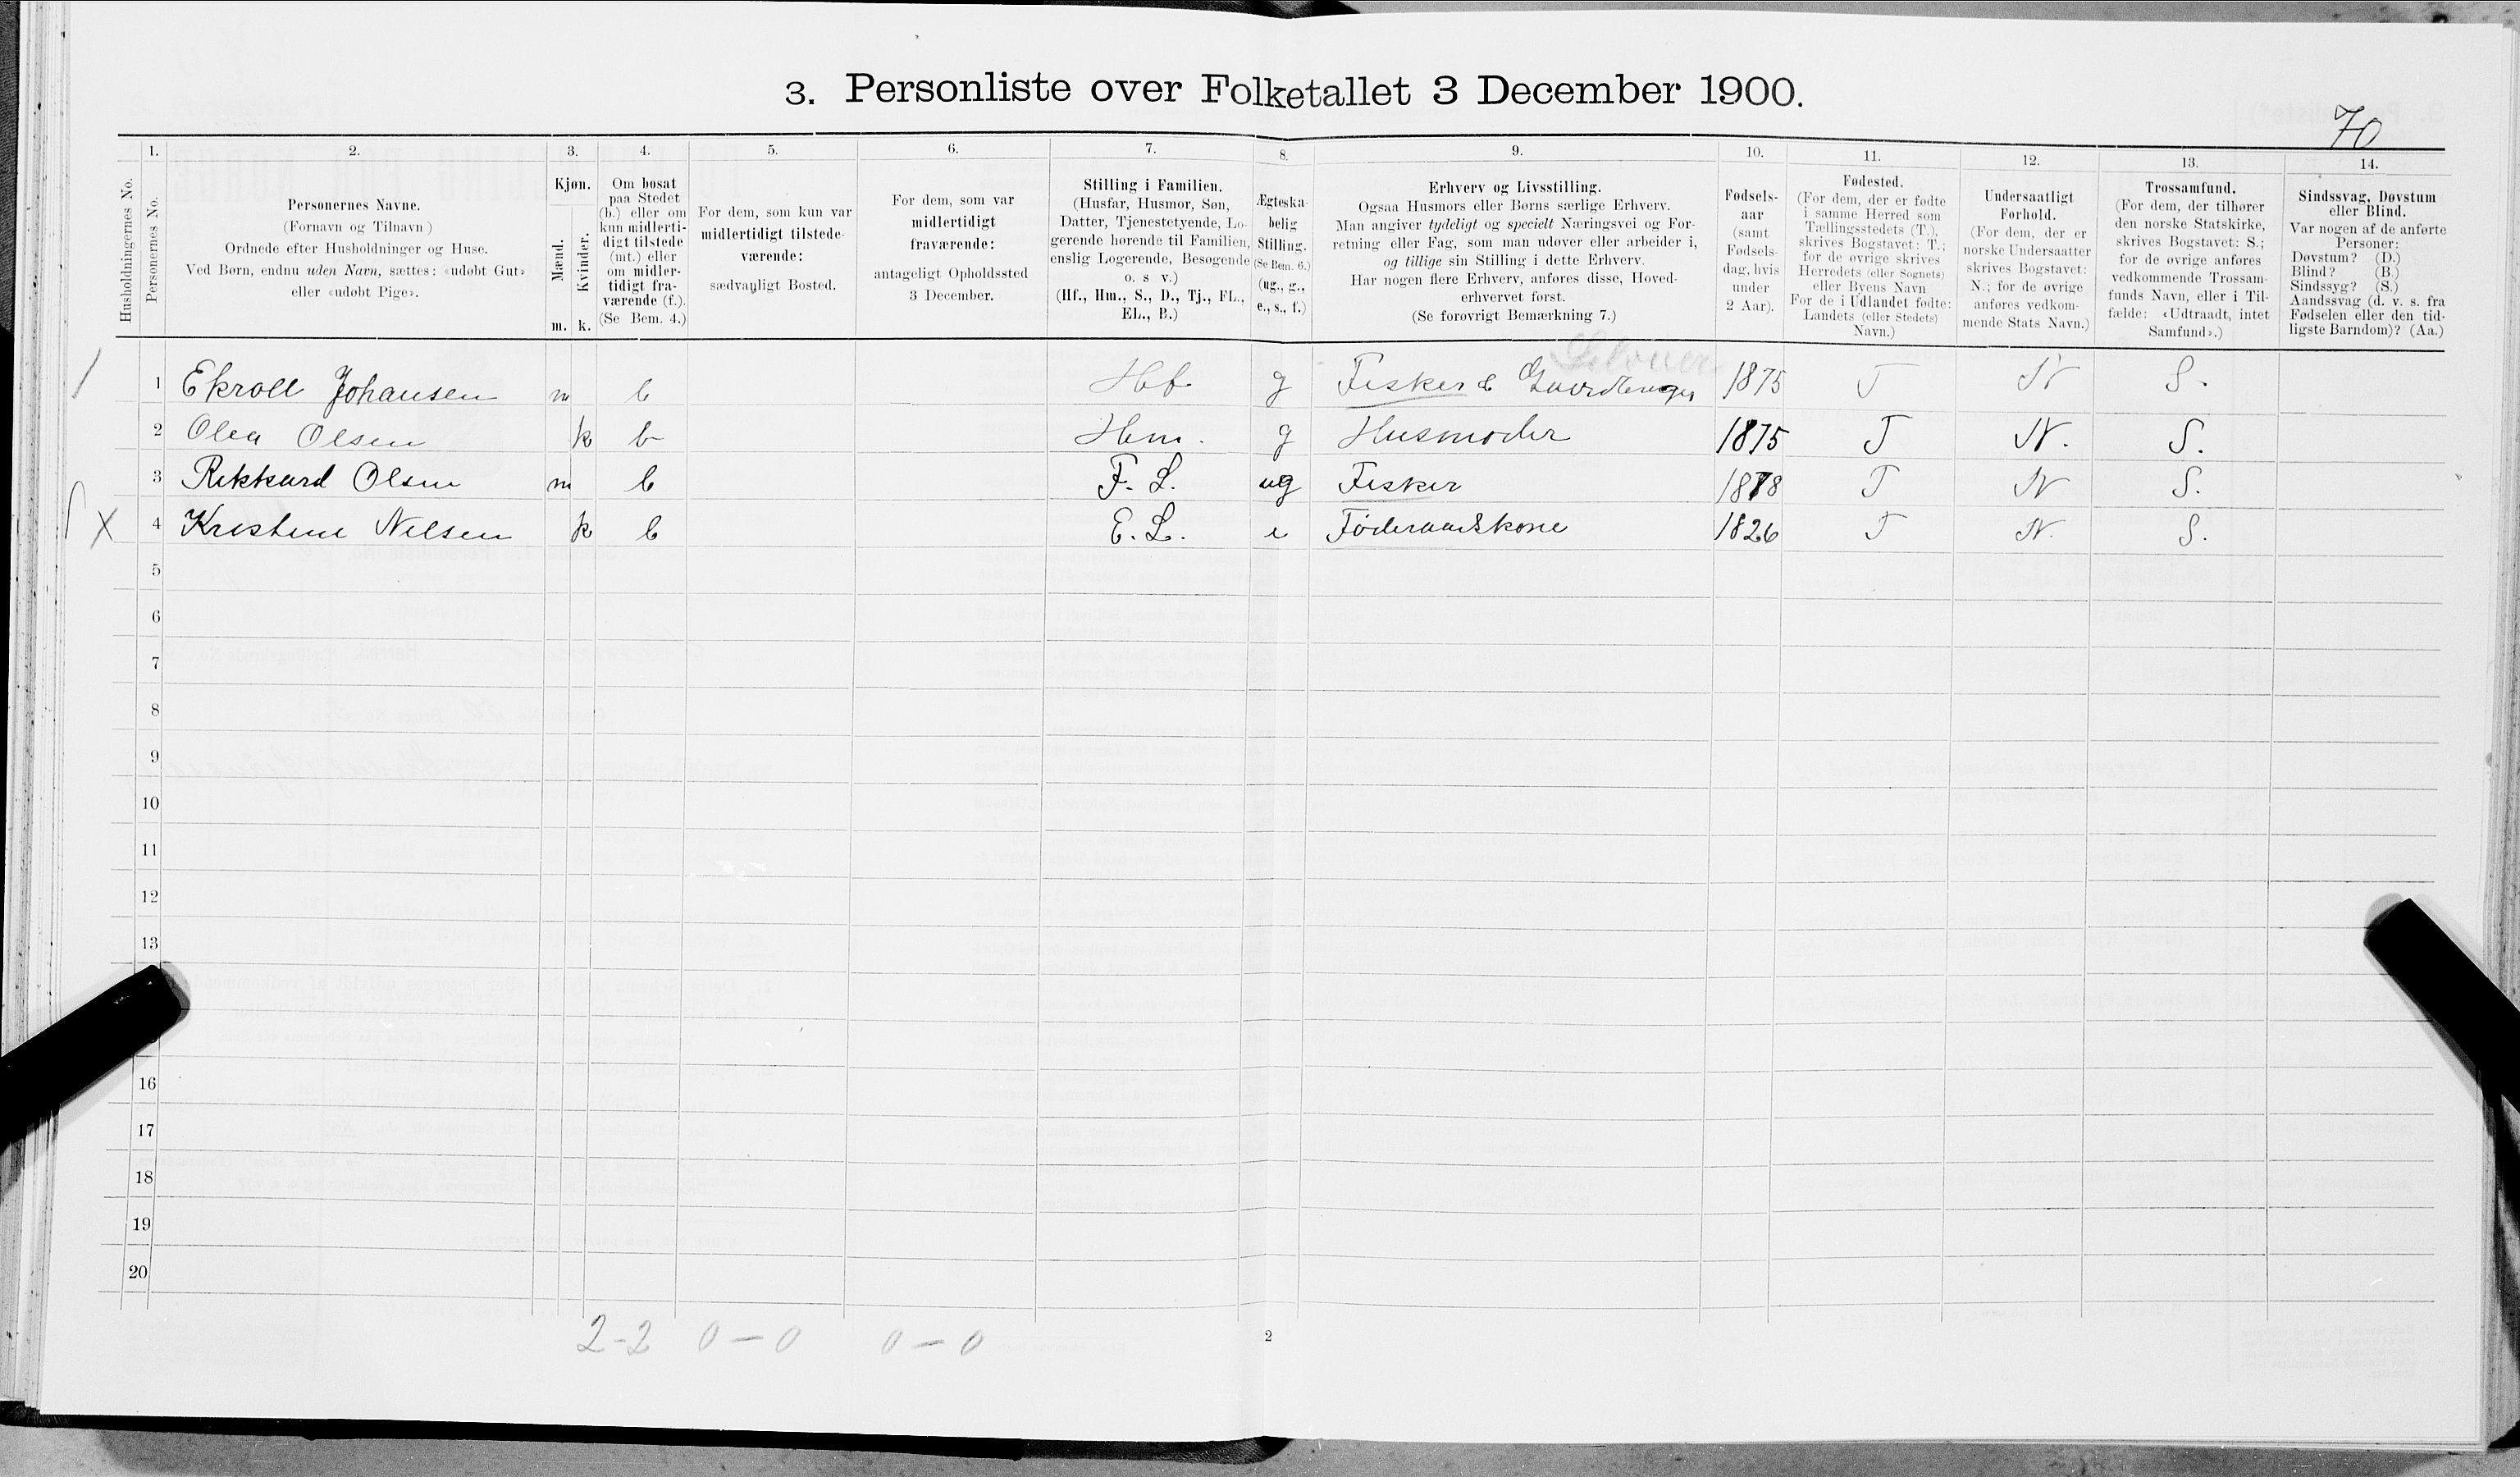 3. Personliste over Folketallet 3 December 1900.
70
1. 2. 3. 4. 5. 6. 7. 8. 9. 10. 11. 12. 13. 14.
Husholdningernes No.
Personernes No.
Personernes Navne.
(Fornavn og Tilnavn)
Ordnede efter Husholdninger og Huse.
Ved Børn, endnu uden Navn, sættes: «udøbt Gut»
eller «udøbt Pige».
Kjøn.
Mænd.
Kvinder.
m. k.
Om bosat
paa Stedet
(b.) eller om
kun midlerti-
digt tilstede
(mt.) eller
om midler-
tidigt fra-
værende (f.).
(Se Bem. 4.)
For dem, som kun var
midlertidigt tilstede-
værende:
sædvanligt Bosted.
For dem, som var
midlertidigt
fraværende:
antageligt Opholdssted
3 December.
Stilling i Familien.
(Husfar, Husmor, Søn,
Datter, Tjenestetyende, Lo-
gerende hørende til Familien,
enslig Logerende, Besøgende
o. s v.)
(Hf., Hm., S., D., Tj., FL.,
EL., B.)
Ægteska-
belig
Stilling.
(Se Bem. 6.)
(ug., g.,
e., s., f.)
Erhverv og Livsstilling.
Ogsaa Husmors eller Børns særlige Erhverv.
Man angiver tydeligt og specielt Næringsvei og For-
retning eller Fag, som man udøver eller arbeider i,
og tillige sin Stilling i dette Erhverv.
Har nogen flere Erhverv, anføres disse, Hoved-
erhvervet først.
(Se forøvrigt Bemærkning 7.)
Fødsels-
aar
(samt
Fødsels-
dag, hvis
under
2 Aar).
Fødested.
(For dem, der er fødte
i samme Herred som
Tællingsstedets (T.),
skrives Bogstavet: T.;
for de øvrige skrives
Herredets (eller Sognets)
eller Byens Navn
For de i Udlandet fødte:
Landets (eller Stedets)
Navn.)
Undersaatligt
Forhold.
(For dem, der er
norske Undersaatter
skrives Bogstavet:
N.; for de øvrige
anføres vedkom-
mende Stats Navn.)
Trossamfund.
(For dem, der tilhører
den norske Statskirke,
skrives Bogstavet: S.;
for de øvrige anføres
vedkommende Trossam-
funds Navn, eller i Til-
fælde: «Udtraadt, intet
Samfund».)
Sindssvag, Døvstum
eller Blind.
Var nogen af de anførte
Personer:
Døvstum? (D.)
Blind? (B.)
Sindssyg? (S.)
Aandssvag (d. v. s. fra
Fødselen eller den tid-
ligste Barndom)? (Aa.)
1 Ekroll Johansen m b Hf g Fisker & Gaardbruger 1875 T N S.
2 Olea Olsen k b Hm. g Husmoder 1875 T N. S.
3 Rikkard Olsen m b F. L. ug Fisker 1878 T N S.
X 4 Kristine Nilsen k b E. L. e Føderaadskone 1826 T N. S.
5
6
7
8
9
10
11
12
13
16
17
18
19
20
2-2 0-0 0-0
2